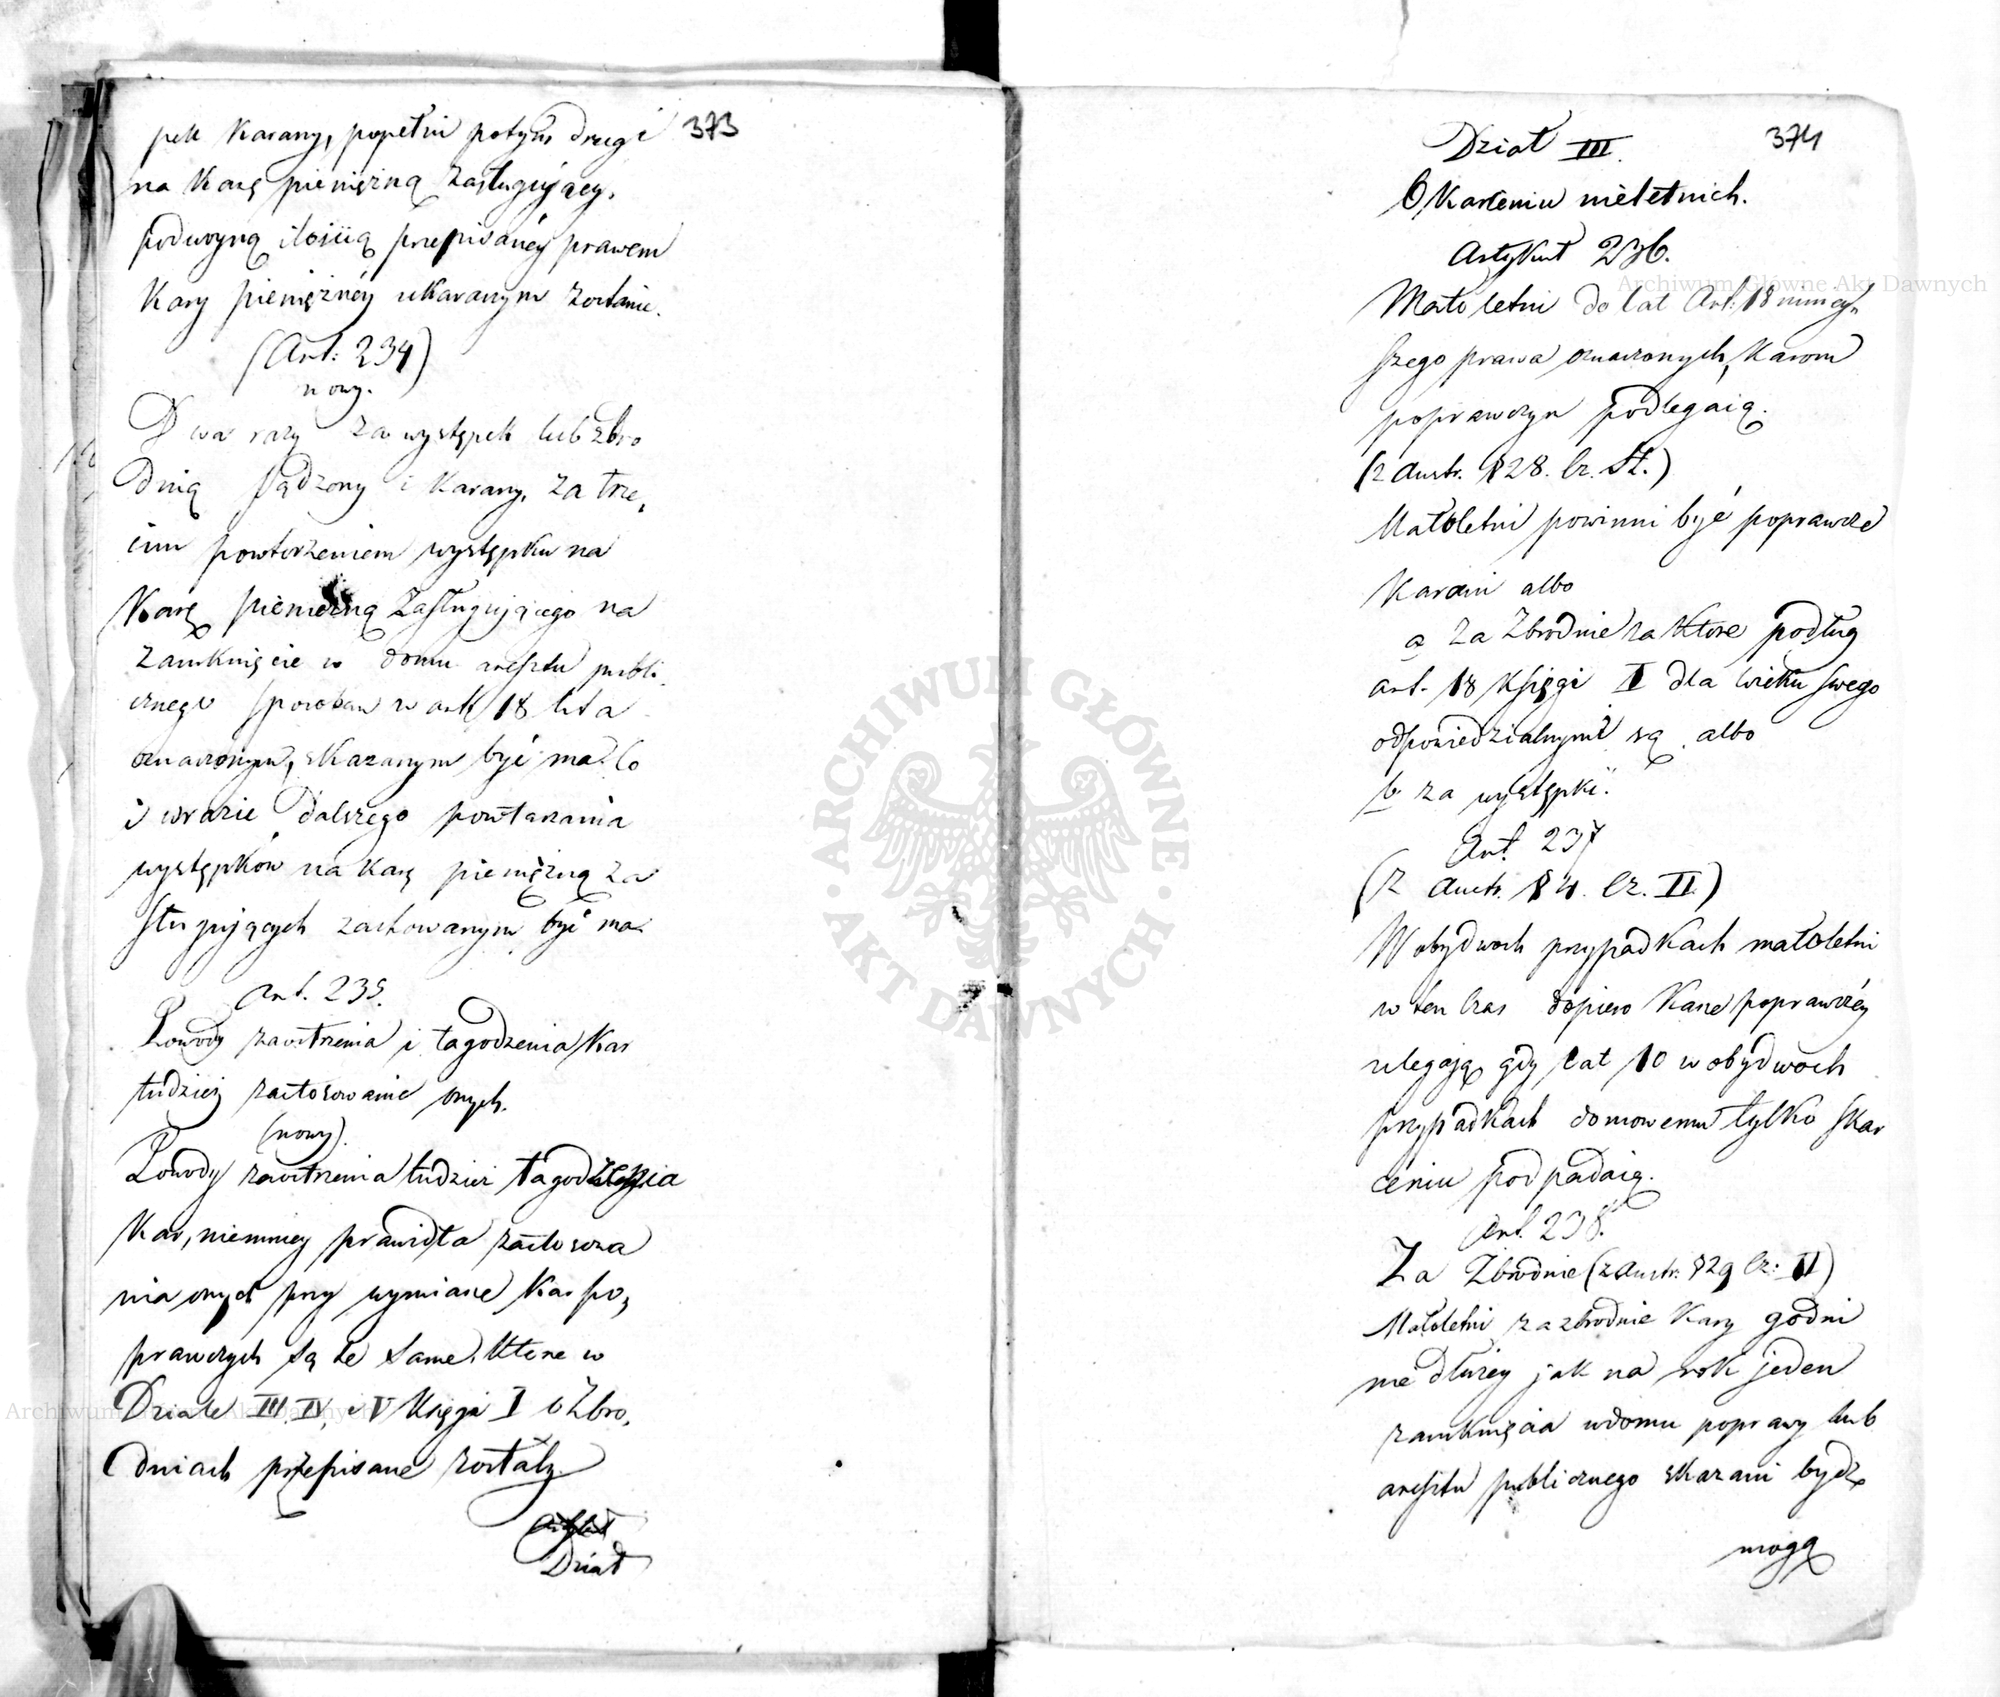 373
pek Karany, popełni potym drugi
na Karę pieniężną zasługujący,
podwoyną ilością przepisanéy prawem
Kary pieniężnéy ukaranym zostanie.
(Art: 234)
nowy.
Dwa razy za występek lub zbro
dnią sądzony i Karany, za trze,
cim powtorzeniem występku na
Karę pieniężną zasługującego na
zamknięcie w domu aresztu publi
cznego sposobem w art 18 lit a
oznaczonym, skazanym być ma. Co
i w razie dalszego powtarzania
występków na Karę pieniężną za
sługujących zachowanym być ma.
Art. 235.
Powody zaostrzenia i łagodzenia Kar
tudzież zastosowanie onych.
(nowy).
Powody zaostrzenia tudzież łagodzenia
Kar, niemniey prawidła zastosowa
nia onych przy wymiarze Kar po,
prawczych są te same, które w
Dziale III, IV, i V Księgi I o Zbro,
dniach przepisane zostały.
Dział
374
Dział III.
O Karceniu nieletnich.
Artykuł 236.
Małoletni do lat Art: 18 niniey,
szego prawa oznaczonych, Karom
poprawczym podlegaią.
(z Austr. § 28. Cz. II.)
Małoletni powinni być poprawcze
Karani albo
a za Zbrodnie za które podług
art. 18 Księgi I dla wieku swego
odpowiedzialnymi są albo
b za występki.
Art. 237
(z Austr. § 4. Cz. II)
W obydwoch przypadkach małoletni
w ten czas dopiero Karze poprawczéy
ulegają gdy lat 10 w obydwoch
przypadkach domowemu tylko skar
ceniu podpadaią.
Art. 238.
Za Zbrodnie (z Austr. § 29 Cz: II)
Małoletni za zbrodnie Kary godni
nie dłużey jak na rok jeden
zamknięcia w domu poprawy lub
aresztu publicznego skazani bydź
mogą
Archiwum Główne Akt Dawnych
ARCHIWUM GŁÓWNE · AKT DAWNYCH ·
Archiwum Główne Akt Dawnych